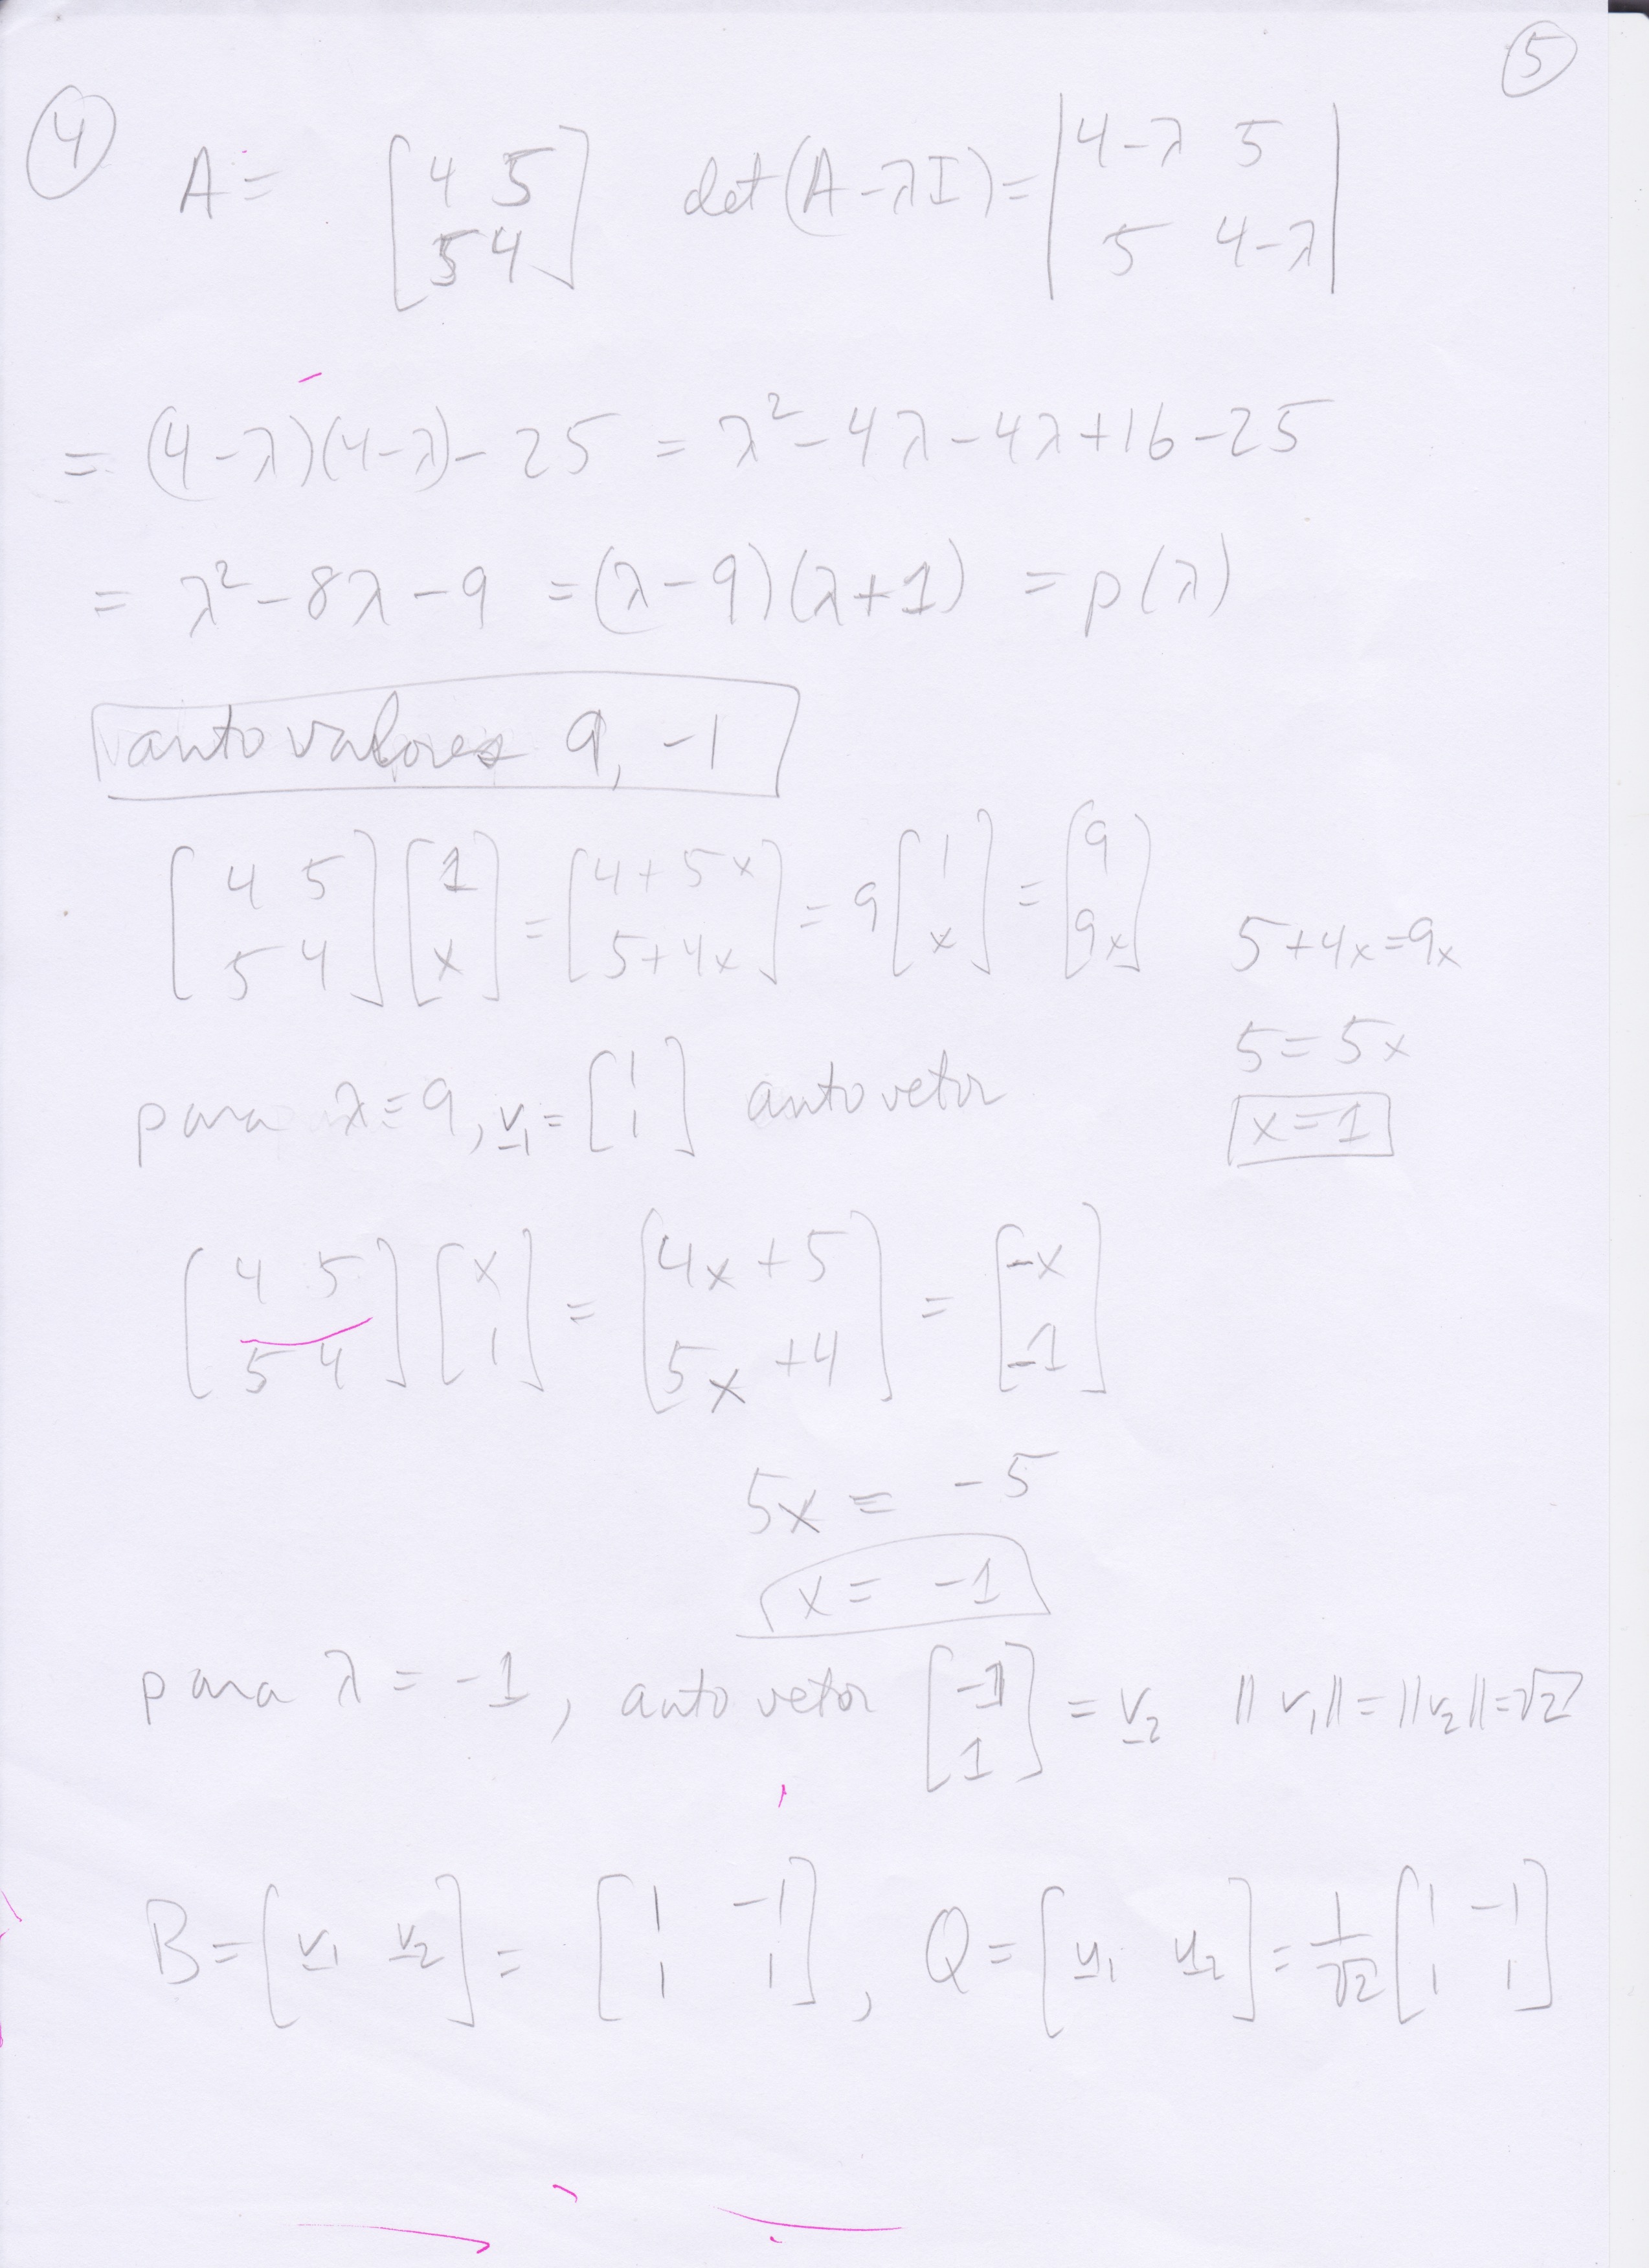 5
4 A = [4 5; 5 4] det(A-λI) = |4-λ 5; 5 4-λ|
= (4-λ)(4-λ) - 25 = λ² - 4λ - 4λ + 16 - 25
= λ² - 8λ - 9 = (λ-9)(λ+1) = p(λ)
autovalores 9, -1
[4 5; 5 4] [1; x] = [4+5x; 5+4x] = 9 [1; x] = [9; 9x]
5+4x=9x
5=5x
para λ=9, v₁ = [1; 1] autovetor
x=1
[4 5; 5 4] [x; 1] = [4x+5; 5x+4] = [-x; -1]
5x = -5
x = -1
para λ = -1, autovetor [-1; 1] = v₂ ||v₁|| = ||v₂|| = √2
B = [v₁ v₂] = [1 -1; 1 1], Q = [u₁ u₂] = 1/√2 [1 -1; 1 1]